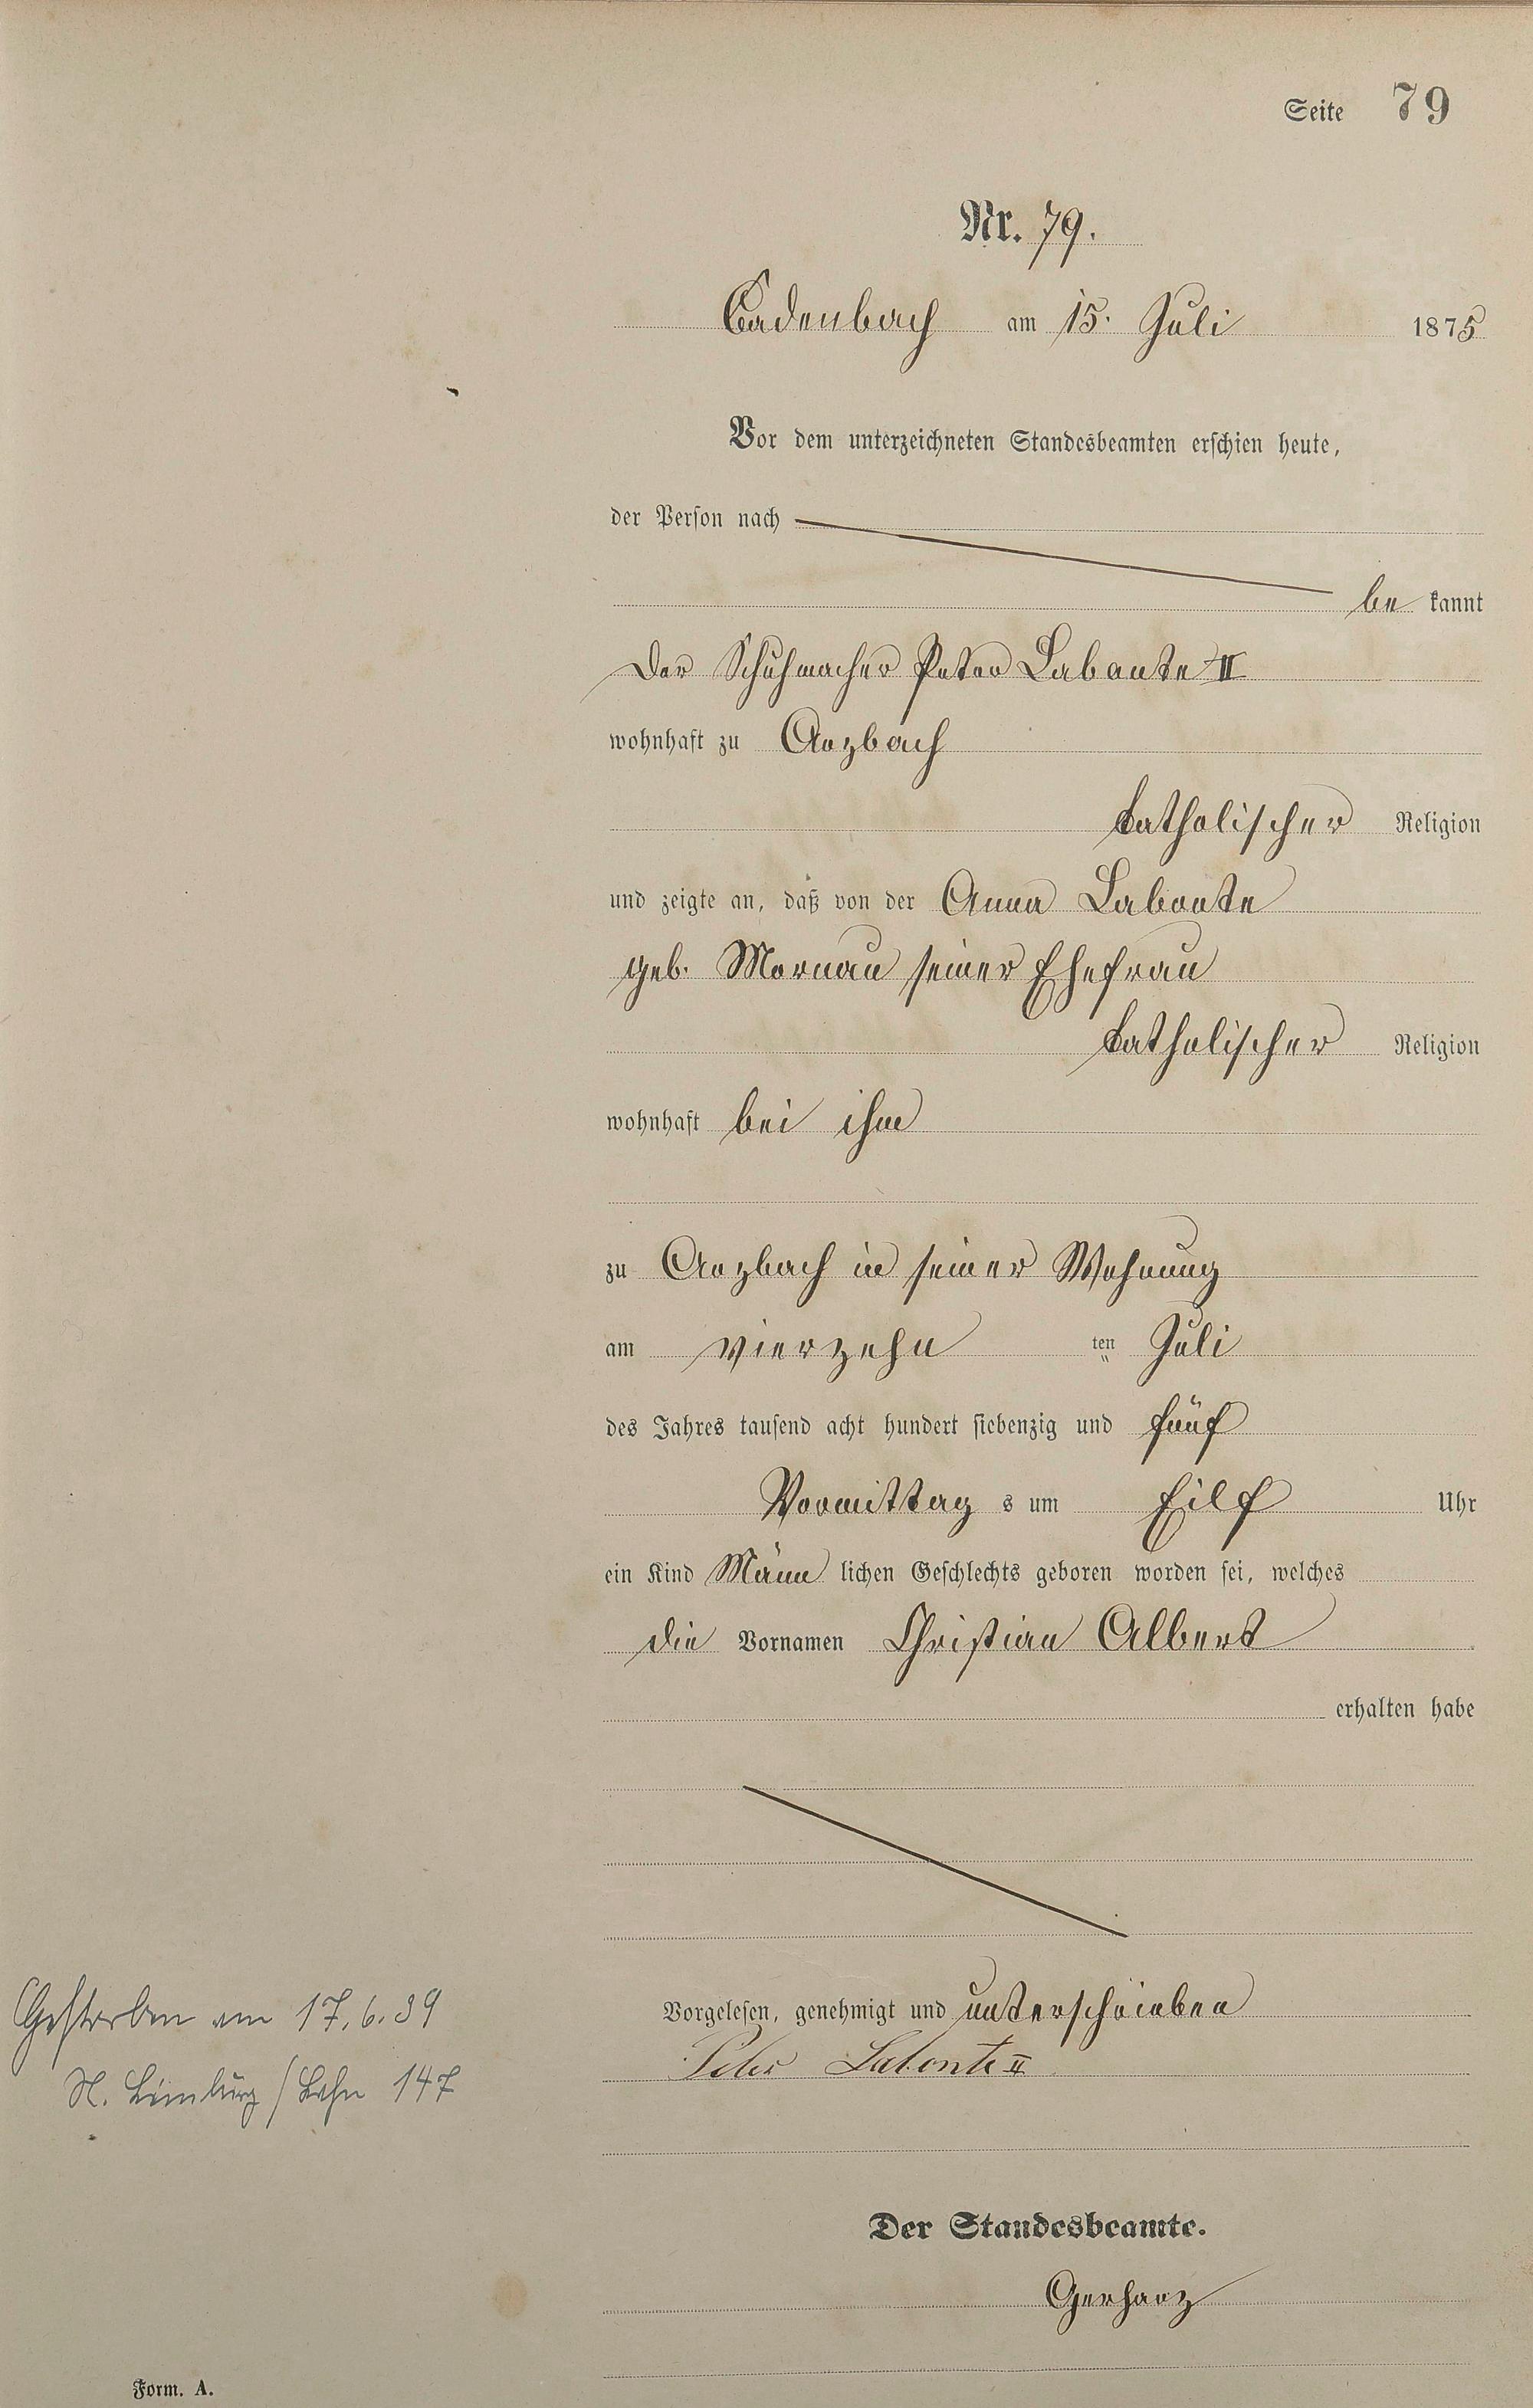 Seite 79
Nr. 79.
Cadenbach am 15. Juli 1875
Vor dem unterzeichneten Standesbeamten erschien heute,
der Person nach
be kannt
Der Schuhmacher Peter Labonte II
wohnhaft zu Arzbach
katholischer Religion
und zeigte an, daß von der Anna Labonte
geb. Mornau seiner Ehefrau
katholischer Religion
wohnhaft bei ihm
zu Arzbach in seiner Wohnung
am vierzehn ten Juli
des Jahres tausend acht hundert siebenzig und fünf
Vormittag s um Eilf Uhr
ein Kind Männ lichen Geschlechts geboren worden sei, welches
die Vornamen Christian Albert
erhalten habe
Vorgelesen, genehmigt und unterschrieben
Peter Labonte II
Gestorben am 17.6.39
N. Limburg/Lahn 147
Der Standesbeamte.
Gerharz
Form. A.